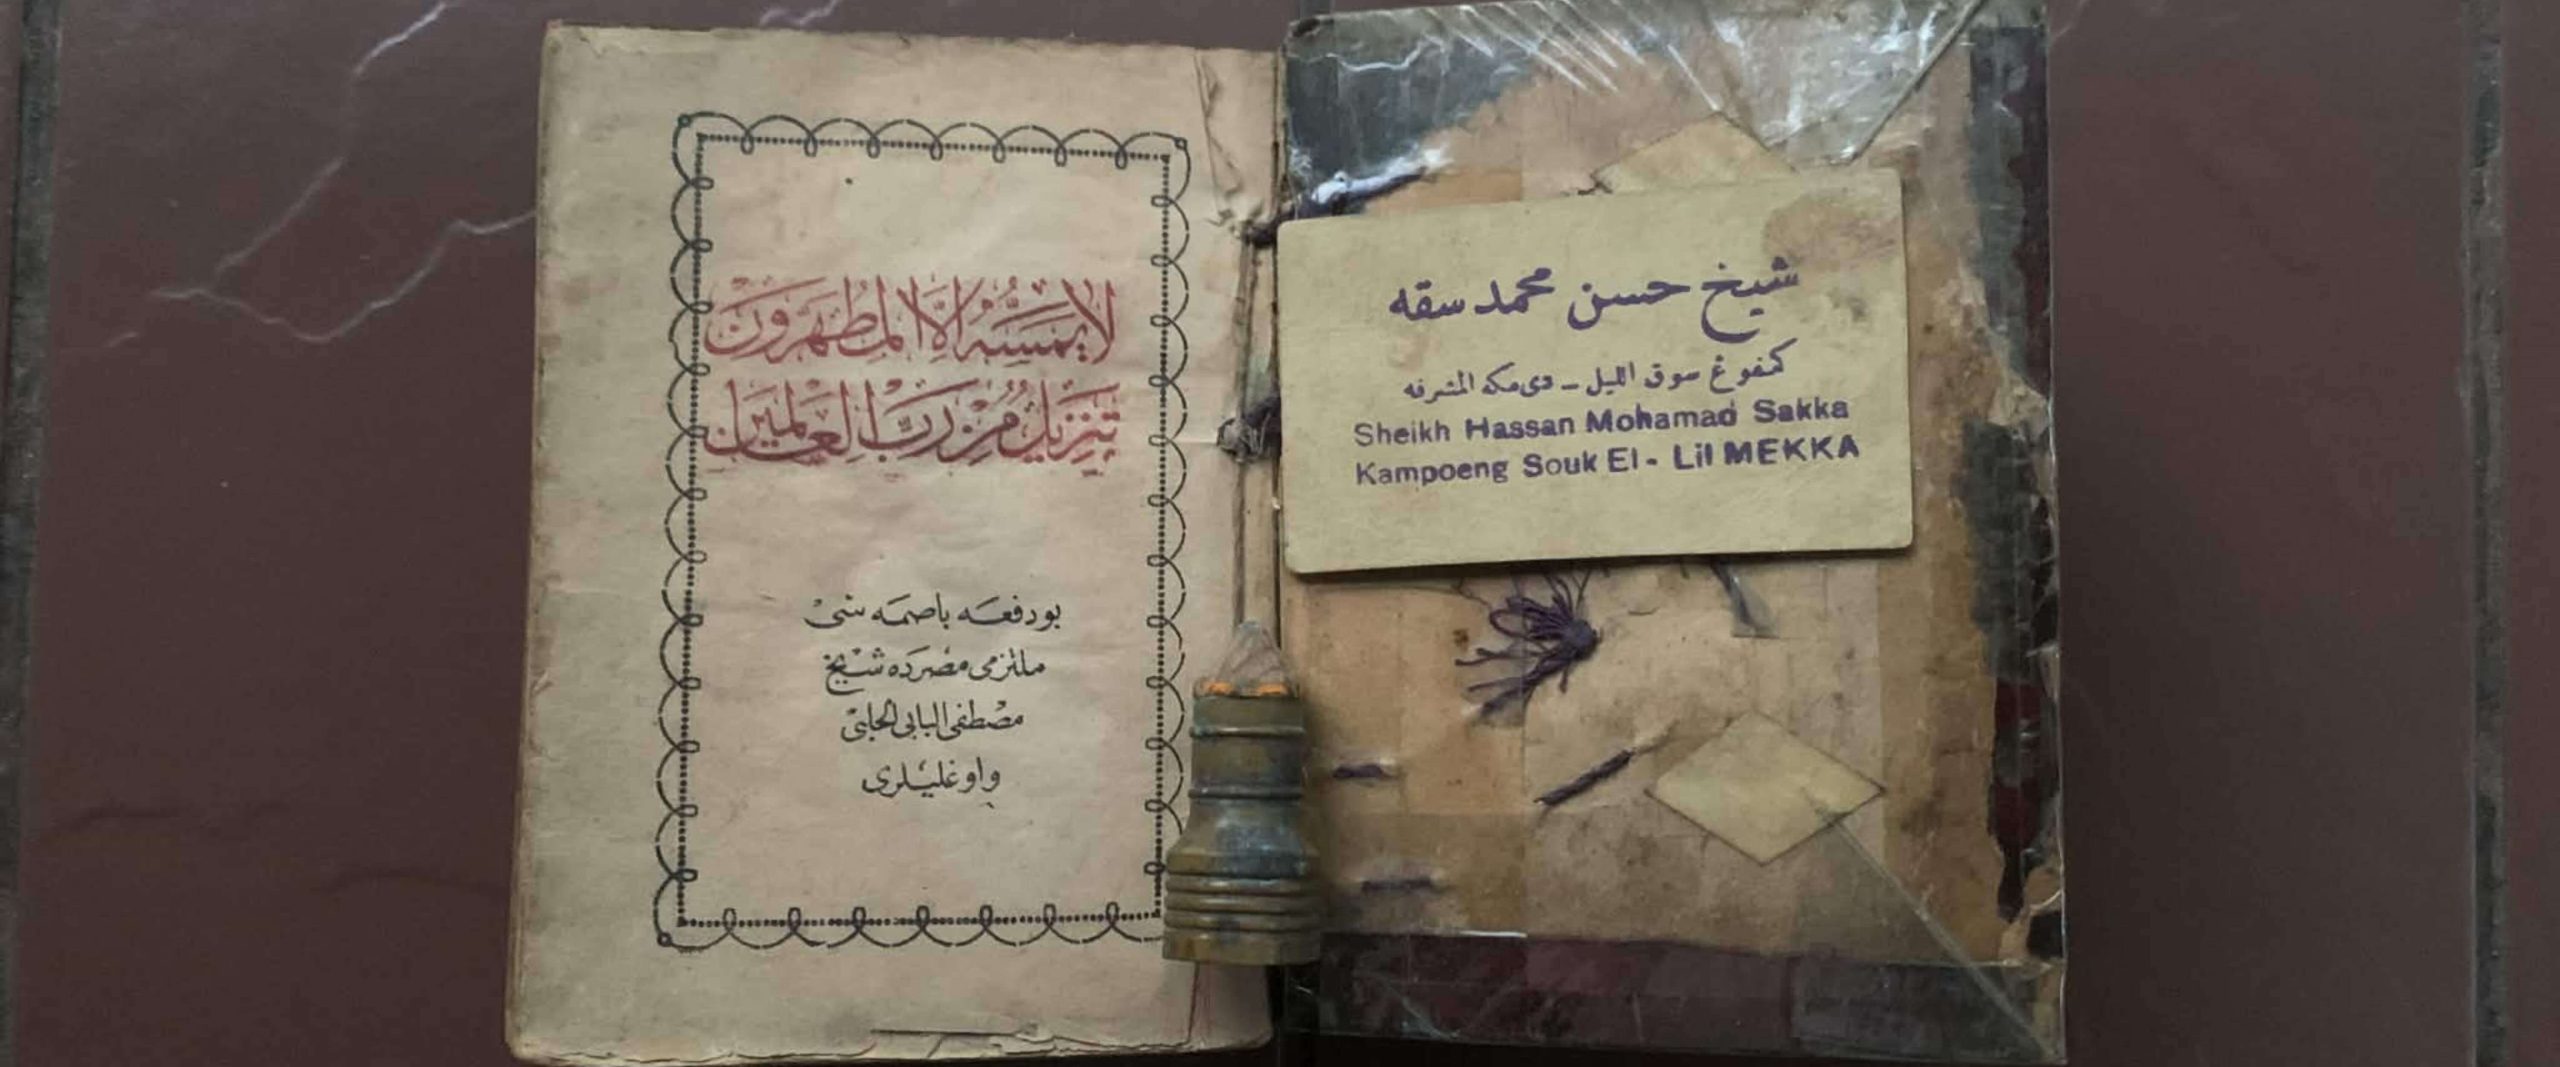 لا يمسه الا المطهرون
تنزيل من رب العالمين
بو دفعه باصمه سى
ملتزمى مصرده شيخ
مصطفى البابى الحلبى
و اوغليلرى
شيخ حسن محمد سقه
كمفوڠ سوق الليل - دى مكه المشرفه
Sheikh Hassan Mohamad Sakka
Kampoeng Souk El - Lil MEKKA